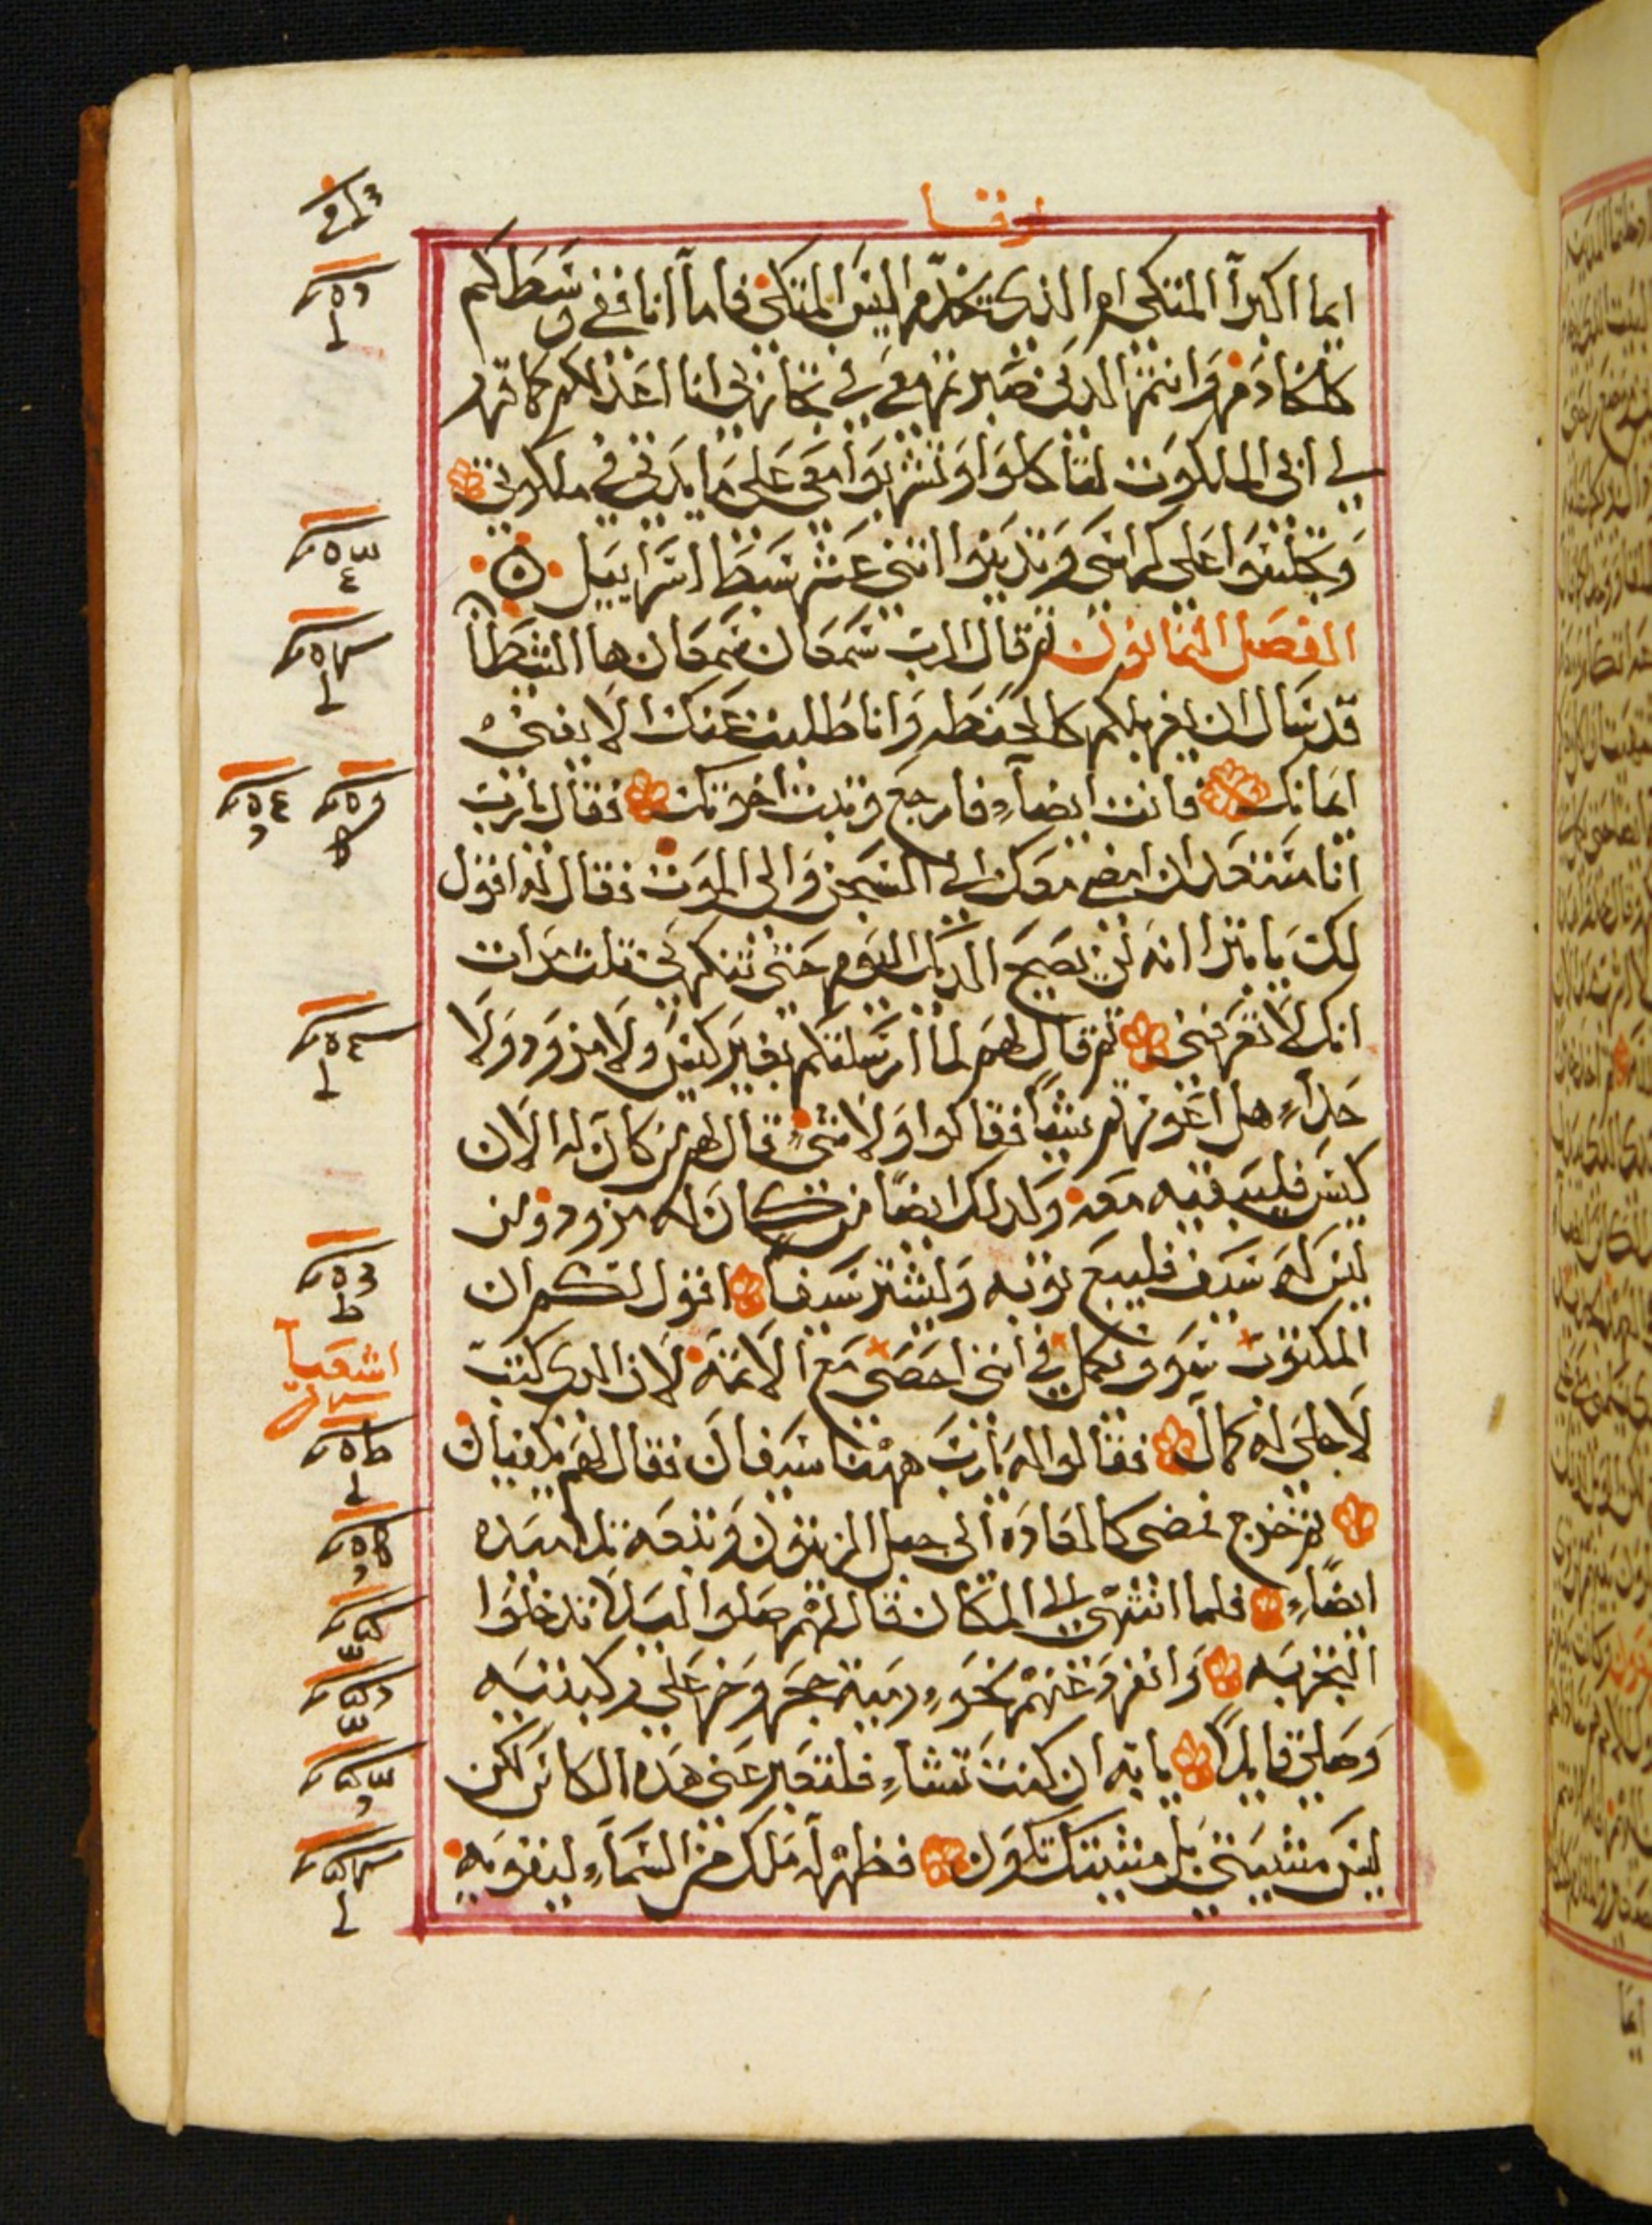 لوقا
ايما اكبرا المتكى ام الذى يخدم اليس المتكى فاما انا ففى وسطكم
كالخادم وانتم الدين صبرتم معى فى تجاربى انا اعد لكم كما وعد
لى ابى الملكوت لتاكلوا وتشربوا معى على مايدتى فى ملكوتى
وتجلسوا على كراسى وتدينوا اثنى عشر سبط اسراييل
الفصل الثمانون ثم قال الرب سمعان سمعان ها الشيطان
قد سال ان يغربلكم كالحنطه وانا طلبت عنك الا يفنى
ايمانك فانت ايضاء فارجع وثبت اخوتك فقال يارب
انا مستعد ان امضى معك الى السجن والى الموت فقال له اقول
لك يا بترا انه لن يصيح الديك اليوم حتى تنكرنى ثلث مرات
انك لا تعرفنى ثم قال لهم لما ارسلتكم بغير كيس ولا مزود ولا
حداء هل اعوزتم شيا فقالوا ولا شى قال لهم من كان له الان
كيس فليبقيه معه وكدلك ايضا من كان له مزود ومن
ليس له سيف فليبع ثوبه وليشتر سيفا اقول لكم ان
المكتوب سوف يكمل فى اننى احصى مع الاثمه لان الدى كتب
لاجلى له كمال فقالوا له يارب ههنا سيفان فقال لهم يكفيان
ثم خرج فمضى كالعاده الى جبل الزيتون وتبعه تلاميده
ايضاء فلما انتهى الى المكان قال لهم صلوا ليلا تدخلوا
التجربه وانفرد عنهم نحو رمية حجر وخر على ركبتيه
وصلى قايلا يا ابه ان كنت تشاء فلتعبر عنى هده الكاس لكن
ليس مشيتى بل مشيتك تكون فظهر له ملاك من السماء ليقويه
اشعيا